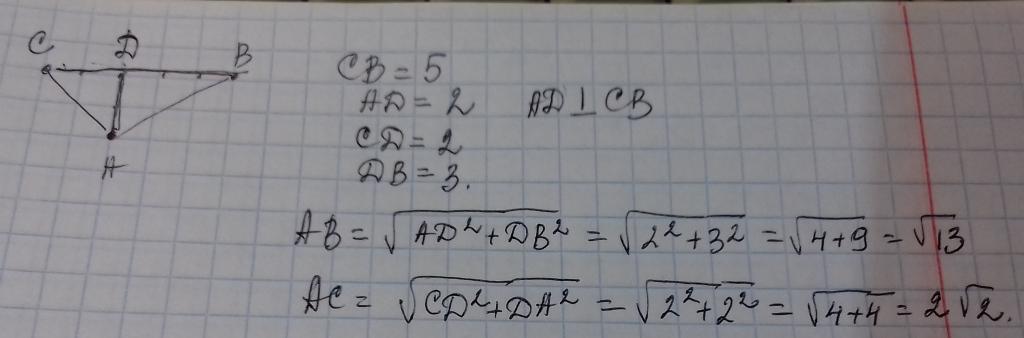 C D B
A
CB = 5
AD = 2 AD ⊥ CB
CD = 2
DB = 3.
AB = √(AD² + DB²) = √(2² + 3²) = √(4 + 9) = √13
AC = √(CD² + DA²) = √(2² + 2²) = √(4 + 4) = 2√2.